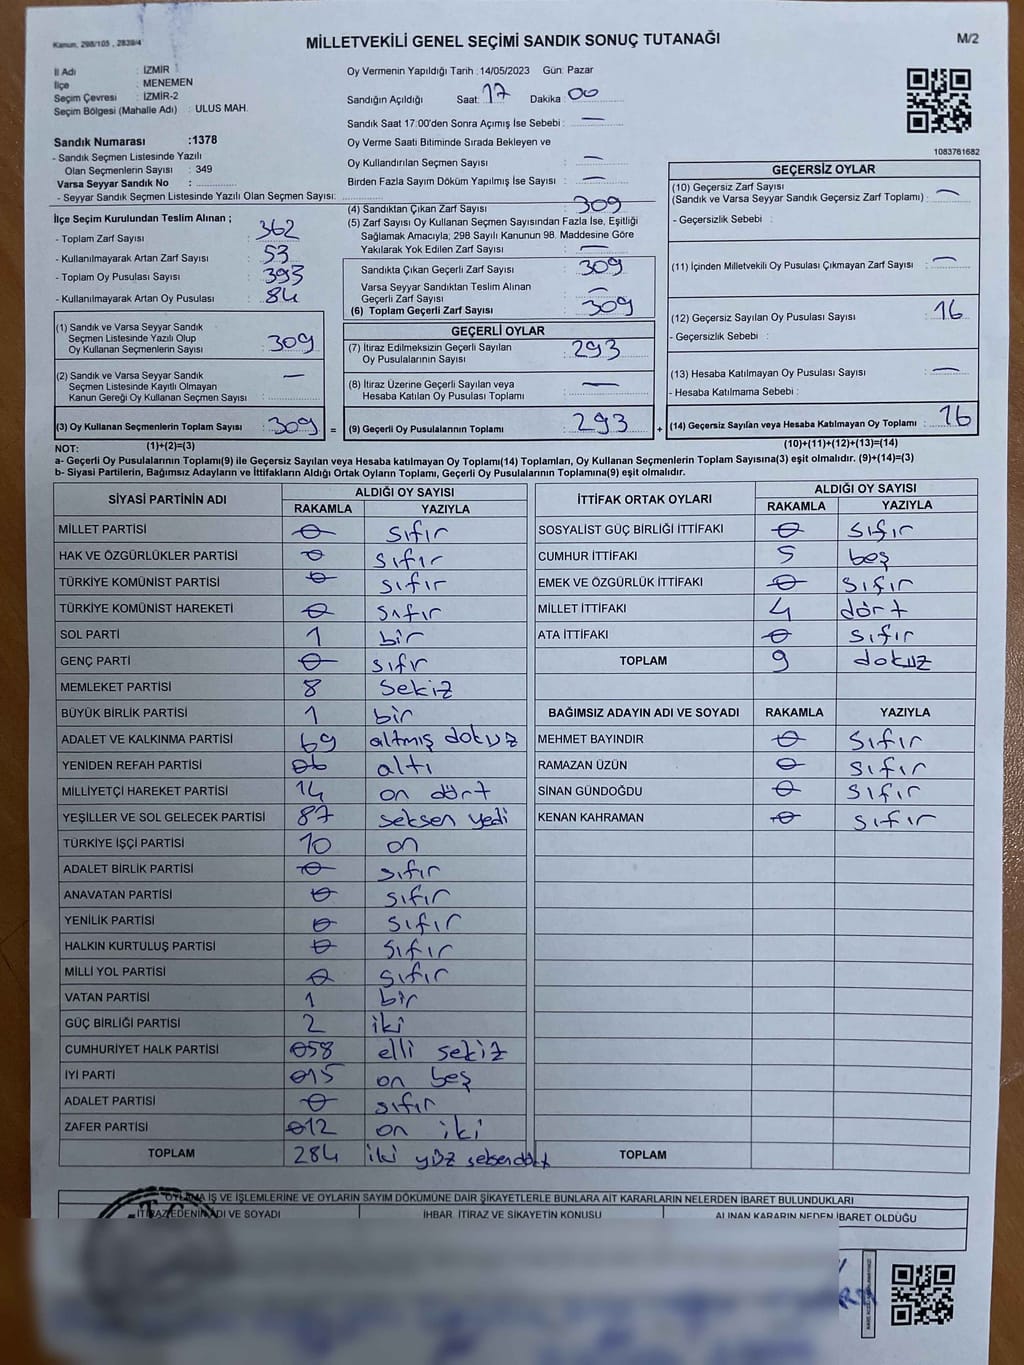 Kanun, 298/105 , 2839/4
MİLLETVEKİLİ GENEL SEÇİMİ SANDIK SONUÇ TUTANAĞI
M/2
İl Adı : İZMİR
İlçe : MENEMEN
Seçim Çevresi : İZMİR-2
Seçim Bölgesi (Mahalle Adı) : ULUS MAH.
Sandık Numarası :1378
- Sandık Seçmen Listesinde Yazılı
Olan Seçmenlerin Sayısı : 349
Varsa Seyyar Sandık No :
- Seyyar Sandık Seçmen Listesinde Yazılı Olan Seçmen Sayısı:
Oy Vermenin Yapıldığı Tarih :14/05/2023 Gün: Pazar
Sandığın Açıldığı Saat: 17 Dakika 00
Sandık Saat 17:00'den Sonra Açımış İse Sebebi : —
Oy Verme Saati Bitiminde Sırada Bekleyen ve
Oy Kullandırılan Seçmen Sayısı : —
Birden Fazla Sayım Döküm Yapılmış İse Sayısı : —
1083761682
İlçe Seçim Kurulundan Teslim Alınan ;
- Toplam Zarf Sayısı : 362
- Kullanılmayarak Artan Zarf Sayısı : 53
- Toplam Oy Pusulası Sayısı : 393
- Kullanılmayarak Artan Oy Pusulası : 84
(1) Sandık ve Varsa Seyyar Sandık
Seçmen Listesinde Yazılı Olup
Oy Kullanan Seçmenlerin Sayısı : 309
(2) Sandık ve Varsa Seyyar Sandık
Seçmen Listesinde Kayıtlı Olmayan
Kanun Gereği Oy Kullanan Seçmen Sayısı : —
(3) Oy Kullanan Seçmenlerin Toplam Sayısı : 309 =
(4) Sandıktan Çıkan Zarf Sayısı : 309
(5) Zarf Sayısı Oy Kullanan Seçmen Sayısından Fazla İse, Eşitliği
Sağlamak Amacıyla; 298 Sayılı Kanunun 98. Maddesine Göre
Yakılarak Yok Edilen Zarf Sayısı : —
Sandıkta Çıkan Geçerli Zarf Sayısı : 309
Varsa Seyyar Sandıktan Teslim Alınan
Geçerli Zarf Sayısı : —
(6) Toplam Geçerli Zarf Sayısı : 309
GEÇERLİ OYLAR
(7) İtiraz Edilmeksizin Geçerli Sayılan
Oy Pusulalarının Sayısı : 293
(8) İtiraz Üzerine Geçerli Sayılan veya
Hesaba Katılan Oy Pusulası Toplamı : —
(9) Geçerli Oy Pusulalarının Toplamı : 293 +
GEÇERSİZ OYLAR
(10) Geçersiz Zarf Sayısı
(Sandık ve Varsa Seyyar Sandık Geçersiz Zarf Toplamı) : —
- Geçersizlik Sebebi :
(11) İçinden Milletvekili Oy Pusulası Çıkmayan Zarf Sayısı : —
(12) Geçersiz Sayılan Oy Pusulası Sayısı : 16
- Geçersizlik Sebebi :
(13) Hesaba Katılmayan Oy Pusulası Sayısı : —
- Hesaba Katılmama Sebebi :
(14) Geçersiz Sayılan veya Hesaba Katılmayan Oy Toplamı : 16
NOT: (1)+(2)=(3) (10)+(11)+(12)+(13)=(14)
a- Geçerli Oy Pusulalarının Toplamı(9) ile Geçersiz Sayılan veya Hesaba katılmayan Oy Toplamı(14) Toplamları, Oy Kullanan Seçmenlerin Toplam Sayısına(3) eşit olmalıdır. (9)+(14)=(3)
b- Siyasi Partilerin, Bağımsız Adayların ve İttifakların Aldığı Ortak Oyların Toplamı, Geçerli Oy Pusulalarının Toplamına(9) eşit olmalıdır.
SİYASİ PARTİNİN ADI ALDIĞI OY SAYISI
RAKAMLA YAZIYLA
MİLLET PARTİSİ 0 sıfır
HAK VE ÖZGÜRLÜKLER PARTİSİ 0 sıfır
TÜRKİYE KOMÜNİST PARTİSİ 0 sıfır
TÜRKİYE KOMÜNİST HAREKETİ 0 sıfır
SOL PARTİ 1 bir
GENÇ PARTİ 0 sıfır
MEMLEKET PARTİSİ 8 sekiz
BÜYÜK BİRLİK PARTİSİ 1 bir
ADALET VE KALKINMA PARTİSİ 69 altmış dokuz
YENİDEN REFAH PARTİSİ 06 altı
MİLLİYETÇİ HAREKET PARTİSİ 14 on dört
YEŞİLLER VE SOL GELECEK PARTİSİ 87 seksen yedi
TÜRKİYE İŞÇİ PARTİSİ 10 on
ADALET BİRLİK PARTİSİ 0 sıfır
ANAVATAN PARTİSİ 0 sıfır
YENİLİK PARTİSİ 0 sıfır
HALKIN KURTULUŞ PARTİSİ 0 sıfır
MİLLİ YOL PARTİSİ 0 sıfır
VATAN PARTİSİ 1 bir
GÜÇ BİRLİĞİ PARTİSİ 2 iki
CUMHURİYET HALK PARTİSİ 058 elli sekiz
İYİ PARTİ 015 on beş
ADALET PARTİSİ 0 sıfır
ZAFER PARTİSİ 012 on iki
TOPLAM 284 iki yüz seksendört
İTTİFAK ORTAK OYLARI ALDIĞI OY SAYISI
RAKAMLA YAZIYLA
SOSYALİST GÜÇ BİRLİĞİ İTTİFAKI 0 sıfır
CUMHUR İTTİFAKI 5 beş
EMEK VE ÖZGÜRLÜK İTTİFAKI 0 sıfır
MİLLET İTTİFAKI 4 dört
ATA İTTİFAKI 0 sıfır
TOPLAM 9 dokuz
BAĞIMSIZ ADAYIN ADI VE SOYADI RAKAMLA YAZIYLA
MEHMET BAYINDIR 0 sıfır
RAMAZAN ÜZÜN 0 sıfır
SİNAN GÜNDOĞDU 0 sıfır
KENAN KAHRAMAN 0 sıfır
TOPLAM
OYLAMA İŞ VE İŞLEMLERİNE VE OYLARIN SAYIM DÖKÜMÜNE DAİR ŞİKAYETLERLE BUNLARA AİT KARARLARIN NELERDEN İBARET BULUNDUKLARI
İTİRAZ EDENİN ADI VE SOYADI İHBAR, İTİRAZ VE ŞİKAYETİN KONUSU ALINAN KARARIN NEDEN İBARET OLDUĞU
T.C.